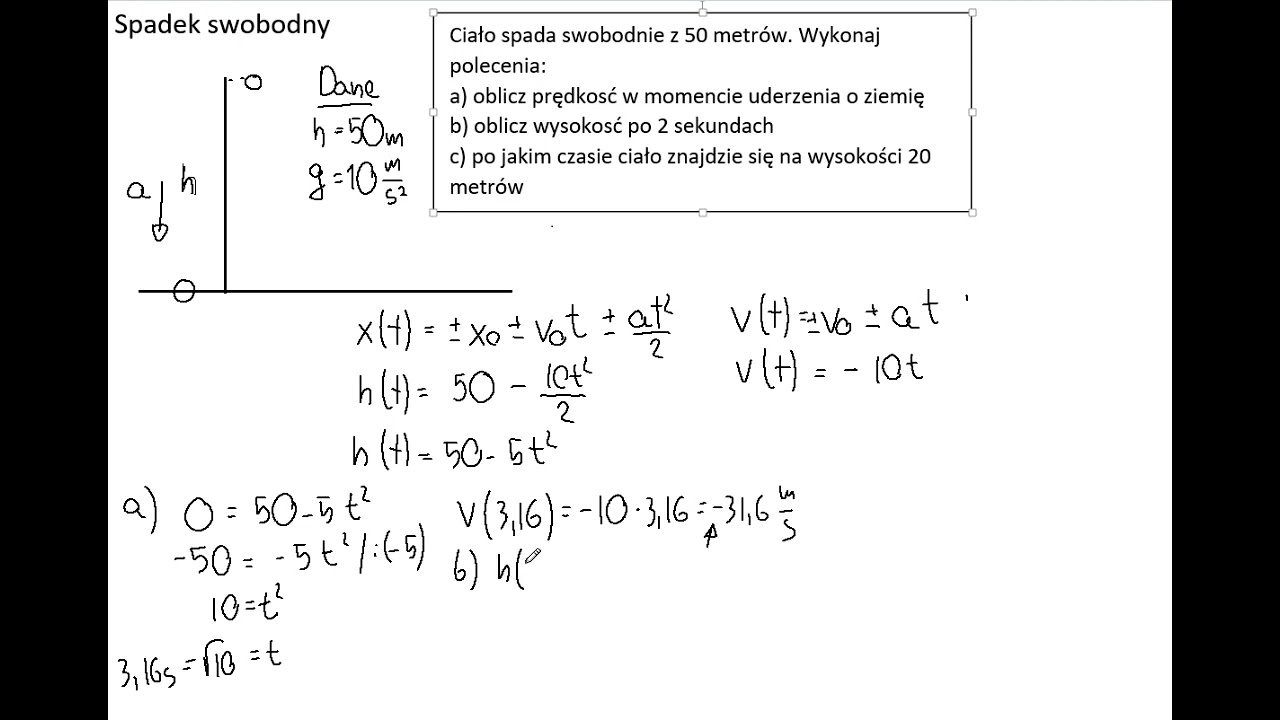 Spadek swobodny
Ciało spada swobodnie z 50 metrów. Wykonaj
polecenia:
a) oblicz prędkosć w momencie uderzenia o ziemię
b) oblicz wysokosć po 2 sekundach
c) po jakim czasie ciało znajdzie się na wysokości 20
metrów
Dane
h = 50m
g = 10 m/s²
a h
x(t) = ± x₀ ± v₀t ± at²/2
h(t) = 50 - 10t²/2
h(t) = 50 - 5t²
v(t) = ±v₀ ± at
v(t) = - 10t
a) 0 = 50 - 5t²
-50 = -5t² /:(-5)
10 = t²
3,16s = √10 = t
v(3,16) = -10·3,16 = -31,6 m/s
b) h(